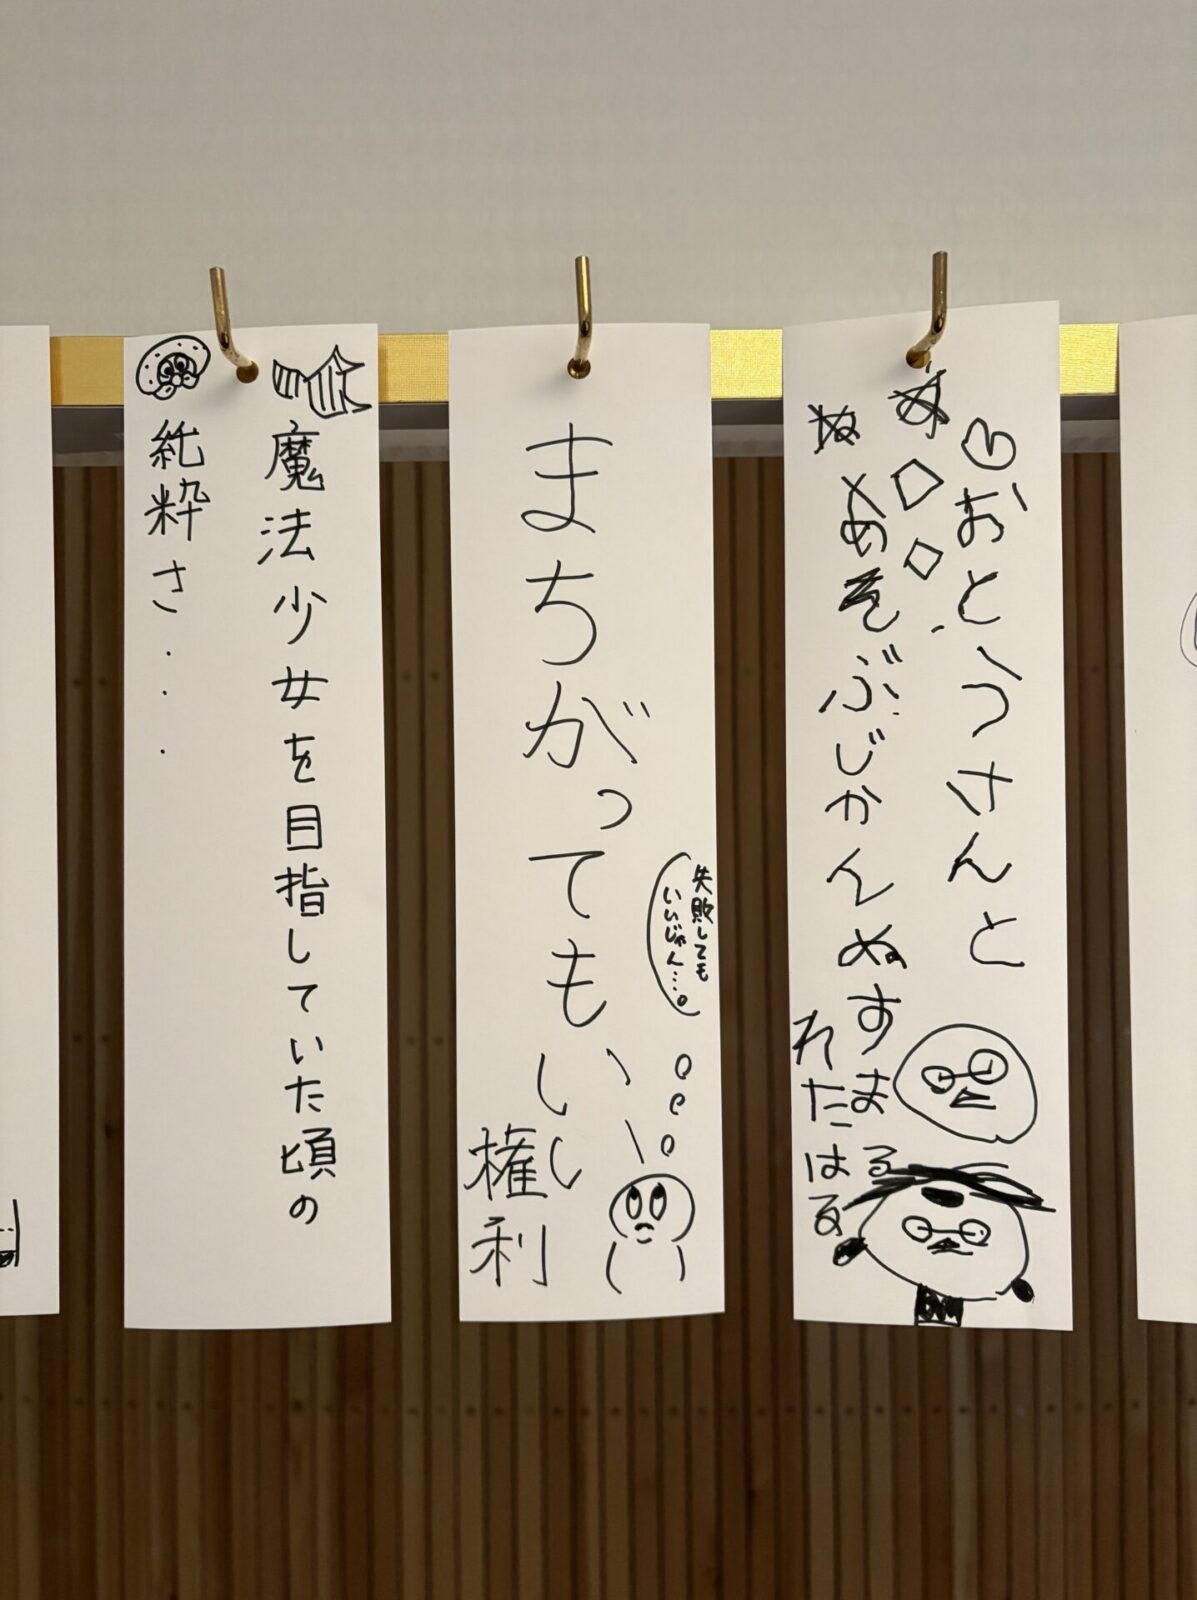 おとうさんと
あそぶじかんぬすまる
れたはる
失敗しても
いいじゃん…。
まちがってもいい
権利
魔法少女を目指していた頃の
純粋さ・・・